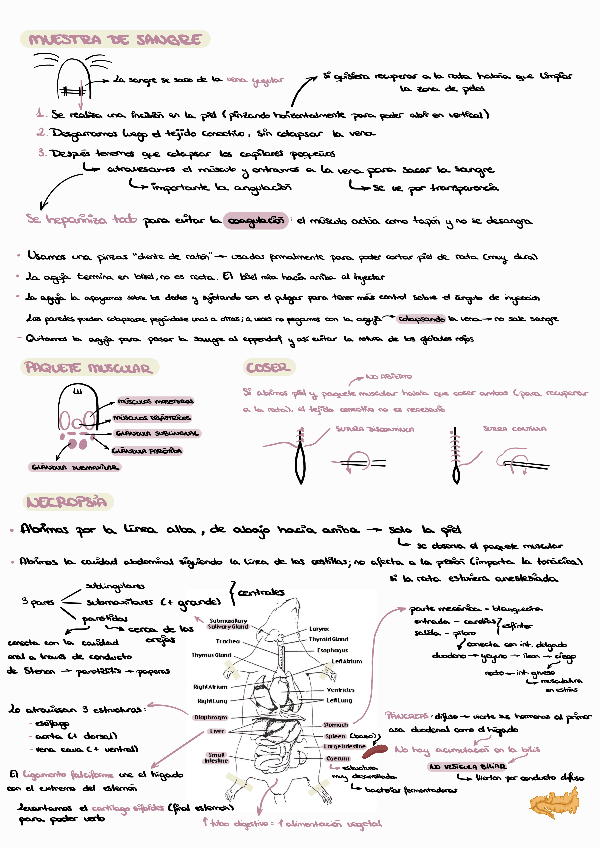 MUESTRA DE SANGRE
La sangre se saca de la vena yugular
Si quisiera recuperar a la rata habría que limpiar
la zona de pelos
1. Se realiza una incisión en la piel (pinzando horizontalmente para poder abrir en vertical)
2. Desgarramos luego el tejido conectivo, sin colapsar la vena
3. Después tenemos que colapsar los capilares pequeños
atravesamos el músculo y entramos a la vena para sacar la sangre
importante la angulación
se ve por transparencia
Se hepariniza todo para evitar la coagulación: el músculo actúa como tapón y no se desangra
• Usamos una pinzas "diente de ratón" → usadas formalmente para poder cortar piel de rata (muy dura)
• La aguja termina en bisel, no es recta. El bisel mira hacia arriba al inyectar
• La aguja la apoyamos sobre los dedos y sujetando con el pulgar para tener más control sobre el ángulo de inyección
Las paredes pueden colapsarse pegándose unas a otras; a veces no pegamos con la aguja → colapsando la vena → no sale sangre
- Quitamos la aguja para pasar la sangre al eppendorf y así evitar la rotura de los glóbulos rojos
PAQUETE MUSCULAR
MÚSCULOS MASETEROS
MÚSCULOS DIGÁSTRICOS
GLÁNDULA SUBLINGUAL
GLÁNDULA PARÓTIDA
GLÁNDULA SUBMAXILAR
COSER
NO ABIERTO
Si abrimos piel y paquete muscular habría que coser ambos (para recuperar
a la rata). el tejido conectivo no es necesario
SUTURA DISCONTINUA
SUTURA CONTINUA
NECROPSIA
• Abrimos por la línea alba, de abajo hacia arriba → solo la piel
se observa el paquete muscular
• Abrimos la cavidad abdominal siguiendo la línea de las costillas; no afecta a la presión (importa la torácica)
si la rata estuviera anestesiada
3 pares
sublinguales
submaxilares (+ grande)
parótidas
centrales
cerca de las
orejas
conecta con la cavidad
oral a través de conducto
de Stenon → parotiditis → paperas
Lo atraviesan 3 estructuras:
- esófago
- aorta (+ dorsal)
- vena cava (+ ventral)
El ligamento falciforme une el hígado
con el extremo del esternón
levantamos el cartílago xifoides (final esternón)
para poder verlo
Submaxillary
Salivary Gland
Trachea
Thymus Gland
Right Atrium
Right Lung
Diaphragm
Liver
Small
Intestine
Larynx
Thyroid Gland
Esophagus
Left Atrium
Ventricles
Left Lung
Stomach
Spleen (bazo)
Large Intestine
Caecum
estructura
muy desarrollada
bacterias fermentadoras
↑ tubo digestivo = ↑ alimentación vegetal
parte mecánica - blanquecina
entrada - cardias
salida - píloro
esfínter
conecta con int. delgado
duodeno → yeyuno → íleon → ciego
recto ← int. grueso
musculatura
en estrías
PÁNCREAS: difuso → vierte sus hormonas al primer
asa duodenal como el hígado
No hay acumulación en la bilis
NO VESÍCULA BILIAR
vierten por conducto difuso